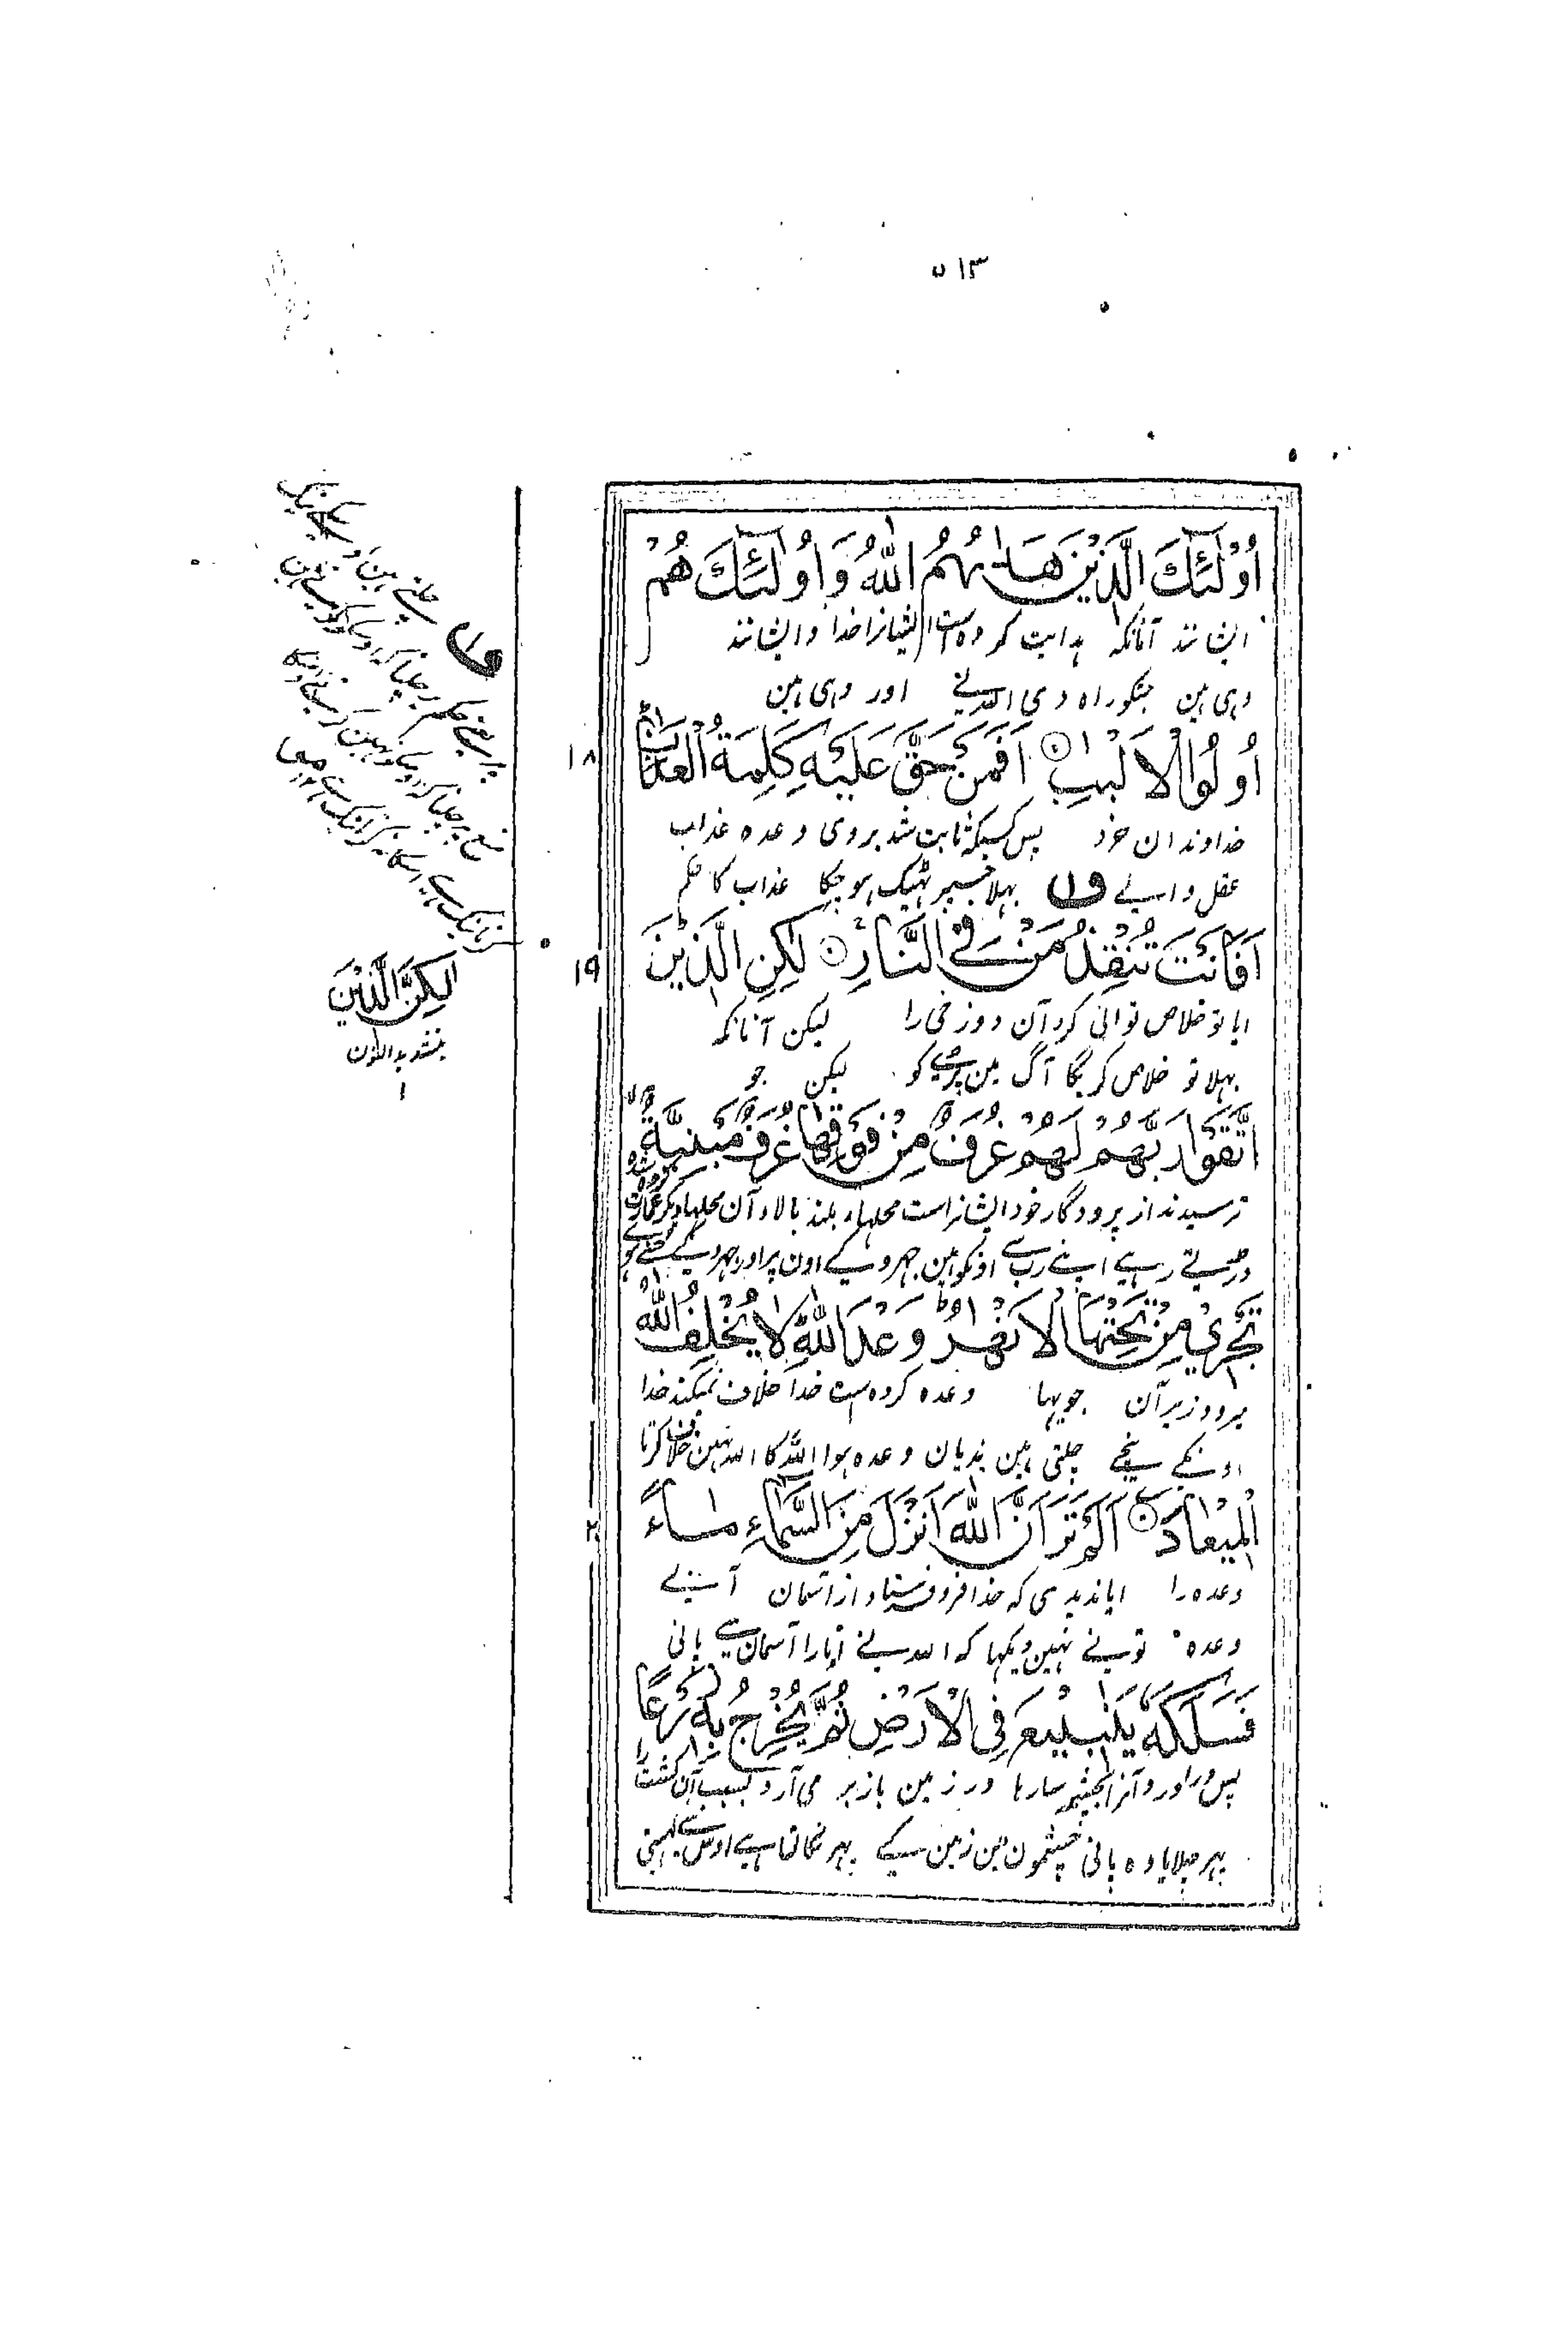 ۵۱۳
اُولٰٓئِكَ الَّذِیْنَ هَدٰىهُمُ اللّٰهُ وَ اُولٰٓئِكَ هُمْ
ایشانند آنانکه هدایت کرده است ایشانرا خدا و ایشانند
وہی ہین جنکو راہ دی اللہ نے اور وہی ہین
اُولُوا الْاَلْبٰبِ ۝ اَفَمَنْ حَقَّ عَلَیْهِ كَلِمَةُ الْعَذَابِ ؕ
۱۸
خداوندان خرد پس کسیکه ثابت شد بر وی وعده عذاب
عقل والے ف۱ بہلا جسپر ٹہیک ہو چکا عذاب کا حکم
اَفَاَنْتَ تُنْقِذُ مَنْ فِی النَّارِ ۝ لٰكِنِ الَّذِیْنَ
۱۹
ایا تو خلاص توانی کرد آن دوزخی را لیکن آنانکه
بہلا تو خلاص کریگا آگ مین پڑے کو لیکن جو
اتَّقَوْا رَبَّهُمْ لَهُمْ غُرَفٌ مِّنْ فَوْقِهَا غُرَفٌ مَّبْنِیَّةٌ ۙ
ترسیدند از پروردگار خود ایشانراست محلهاء بلند بالاء آن محلهاء دیگر
ڈرتے رہے اپنے رب سے اونکو ہین جہروکے اون پر اور جہروکے
تَجْرِیْ مِنْ تَحْتِهَا الْاَنْهٰرُ ؕ وَعْدَ اللّٰهِ لَا یُخْلِفُ اللّٰهُ
میرود زیر آن جویها وعده کرده است خدا خلاف نمیکند خدا
اونکے نیچے چلتی ہین ندیان وعدہ ہوا اللہ کا اللہ نہین خلاف کرتا
الْمِیْعَادَ ۝ اَلَمْ تَرَ اَنَّ اللّٰهَ اَنْزَلَ مِنَ السَّمَآءِ مَآءً
۲۰
وعده را ایا ندیدی که خدا فرو فرستاد از آسمان آبے
وعدہ تو نے نہین دیکہا کہ اللہ نے اتارا آسمان سے پانی
فَسَلَكَهٗ یَنَابِیْعَ فِی الْاَرْضِ ثُمَّ یُخْرِجُ بِهٖ زَرْعًا
پس در آورد آنرا بچشمه سارها در زمین باز بر می آرد بسبب آن کشت را
پہر چلایا وہ پانی چشمون مین زمین کے پہر نکالتا ہے اوس سے کہیتی
ف۱
لٰكِنَّ الَّذِیْنَ
بتشدید النون
۱